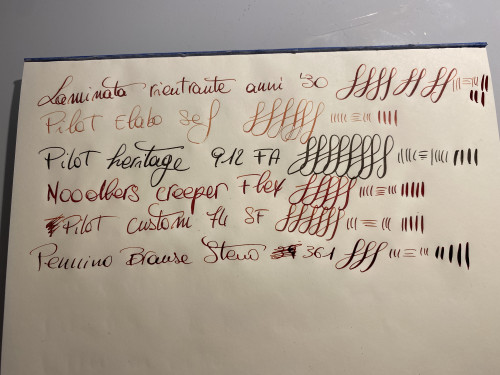 Laminata rientrante anni '30
Pilot Elabo Sef
Pilot heritage 912 FA
Nooolbers creeper Flex
Pilot custom 74 SF
Pennino Brause Steno 361